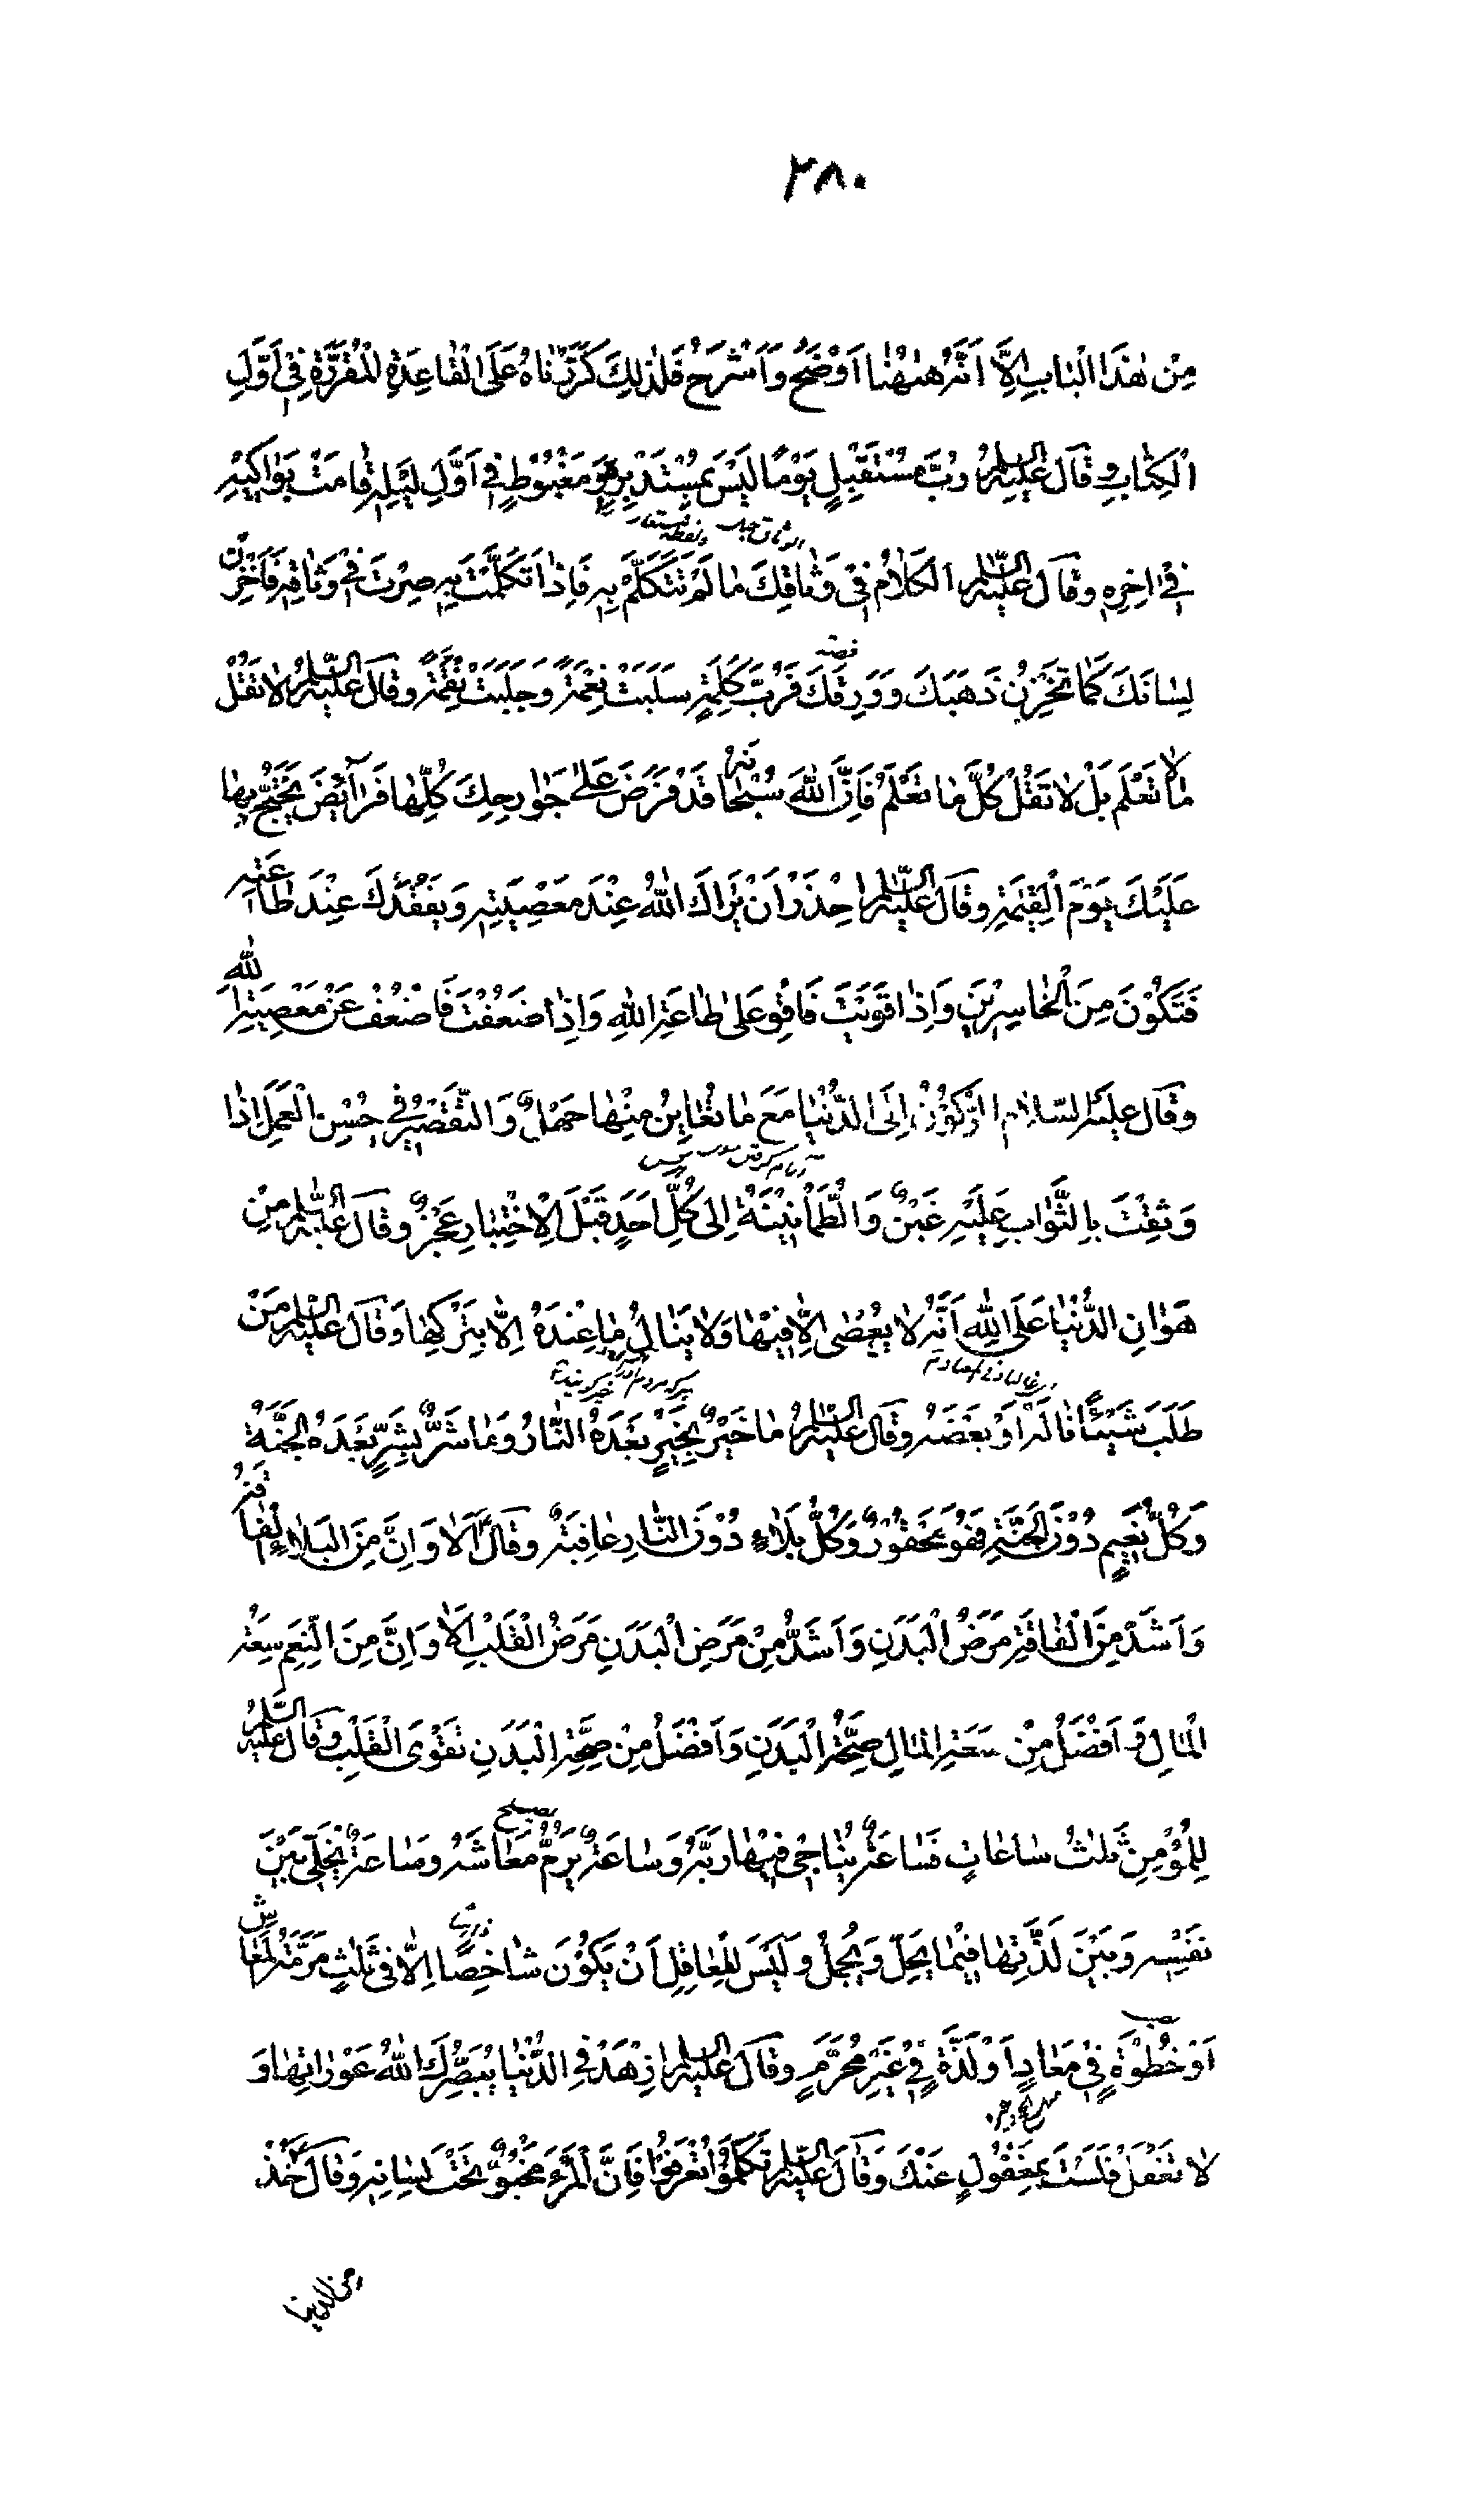 ۲۸۰
مِنْ هٰذَا الْبَابِ اِلَّا اَنَّهُ هٰهُنَا اَوْضَحُ وَاَشْرَحُ فَلِذٰلِكَ كَرَّرْنَاهُ عَلَى الْقَاعِدَةِ الْمُقَرَّرَةِ فِيْ اَوَّلِ
الْكِتَابِ وَقَالَ عَلَيْهِ السَّلَامُ رُبَّ مُسْتَقْبِلٍ يَوْمًا لَيْسَ بِمُسْتَدْبِرِهِ وَمَغْبُوْطٍ فِيْ اَوَّلِ لَيْلِهِ قَامَتْ بَوَاكِيْهِ
فِيْ اٰخِرِهِ وَقَالَ عَلَيْهِ السَّلَامُ الْكَلَامُ فِيْ وَثَاقِكَ مَا لَمْ تَتَكَلَّمْ بِهِ فَاِذَا تَكَلَّمْتَ بِهِ صِرْتَ فِيْ وَثَاقِهِ فَاخْزُنْ
لِسَانَكَ كَمَا تَخْزُنُ ذَهَبَكَ وَوَرِقَكَ فَرُبَّ كَلِمَةٍ سَلَبَتْ نِعْمَةً وَجَلَبَتْ نِقْمَةً وَقَالَ عَلَيْهِ السَّلَامُ لَا تَقُلْ
مَا لَا تَعْلَمُ بَلْ لَا تَقُلْ كُلَّ مَا تَعْلَمُ فَاِنَّ اللّٰهَ سُبْحَانَهُ قَدْ فَرَضَ عَلٰى جَوَارِحِكَ كُلِّهَا فَرَآئِضَ يَحْتَجُّ بِهَا
عَلَيْكَ يَوْمَ الْقِيٰمَةِ وَقَالَ عَلَيْهِ السَّلَامُ احْذَرْ اَنْ يَرَاكَ اللّٰهُ عِنْدَ مَعْصِيَتِهِ وَيَفْقُدَكَ عِنْدَ طَاعَتِهِ
فَتَكُوْنَ مِنَ الْخَاسِرِيْنَ وَاِذَا قَوِيْتَ فَاقْوَ عَلٰى طَاعَةِ اللّٰهِ وَاِذَا ضَعُفْتَ فَاضْعُفْ عَنْ مَعْصِيَةِ اللّٰهِ
وَقَالَ عَلَيْهِ السَّلَامُ الرُّكُوْنُ اِلَى الدُّنْيَا مَعَ مَا تُعَايِنُ مِنْهَا جَهْلٌ وَالتَّقْصِيْرُ فِيْ حُسْنِ الْعَمَلِ اِذَا
وَثِقْتَ بِالثَّوَابِ عَلَيْهِ غَبْنٌ وَالطُّمَاْنِيْنَةُ اِلٰى كُلِّ اَحَدٍ قَبْلَ الْاِخْتِبَارِ عَجْزٌ وَقَالَ عَلَيْهِ السَّلَامُ مِنْ
هَوَانِ الدُّنْيَا عَلَى اللّٰهِ اَنَّهُ لَا يُعْصٰى اِلَّا فِيْهَا وَلَا يُنَالُ مَا عِنْدَهُ اِلَّا بِتَرْكِهَا وَقَالَ عَلَيْهِ السَّلَامُ مَنْ
طَلَبَ شَيْئًا نَالَهُ اَوْ بَعْضَهُ وَقَالَ عَلَيْهِ السَّلَامُ مَا خَيْرٌ بِخَيْرٍ بَعْدَهُ النَّارُ وَمَا شَرٌّ بِشَرٍّ بَعْدَهُ الْجَنَّةُ
وَكُلُّ نَعِيْمٍ دُوْنَ الْجَنَّةِ فَهُوَ مَحْقُوْرٌ وَكُلُّ بَلَاءٍ دُوْنَ النَّارِ عَافِيَةٌ وَقَالَ اَلَا وَاِنَّ مِنَ الْبَلَاءِ الْفَاقَةَ
وَاَشَدُّ مِنَ الْفَاقَةِ مَرَضُ الْبَدَنِ وَاَشَدُّ مِنْ مَرَضِ الْبَدَنِ مَرَضُ الْقَلْبِ اَلَا وَاِنَّ مِنَ النِّعَمِ سَعَةَ
الْمَالِ وَ اَفْضَلُ مِنْ سَعَةِ الْمَالِ صِحَّةُ الْبَدَنِ وَاَفْضَلُ مِنْ صِحَّةِ الْبَدَنِ تَقْوَى الْقَلْبِ وَقَالَ عَلَيْهِ السَّلَامُ
لِلْمُؤْمِنِ ثَلٰثُ سَاعَاتٍ فَسَاعَةٌ يُنَاجِيْ فِيْهَا رَبَّهُ وَسَاعَةٌ يَرُمُّ مَعَاشَهُ وَسَاعَةٌ يُخَلِّيْ بَيْنَ
نَفْسِهِ وَبَيْنَ لَذَّتِهَا فِيْمَا يَحِلُّ وَيَجْمُلُ وَلَيْسَ لِلْعَاقِلِ اَنْ يَكُوْنَ شَاخِصًا اِلَّا فِيْ ثَلٰثٍ مَرَمَّةٍ لِمَعَاشٍ
اَوْ خُطْوَةٍ فِيْ مَعَادٍ اَوْ لَذَّةٍ فِيْ غَيْرِ مُحَرَّمٍ وَقَالَ عَلَيْهِ السَّلَامُ ازْهَدْ فِي الدُّنْيَا يُبَصِّرْكَ اللّٰهُ عَوْرَاتِهَا وَ
لَا تَغْفُلْ فَلَسْتَ بِمَغْفُوْلٍ عَنْكَ وَقَالَ عَلَيْهِ السَّلَامُ تَكَلَّمُوْا تُعْرَفُوْا فَاِنَّ الْمَرْءَ مَخْبُوٌّ تَحْتَ لِسَانِهِ وَقَالَ خُذْ